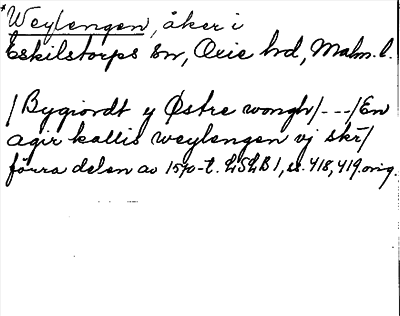 *Weylengen, åker i
Eskilstorps sn, Oxie hd, Malm. l.
/Bygiordt y Østre wongh/---/En
agir kallis weylengen vj skr/
förra delen av 1570-t. LSLB 1, s. 418, 419 orig.